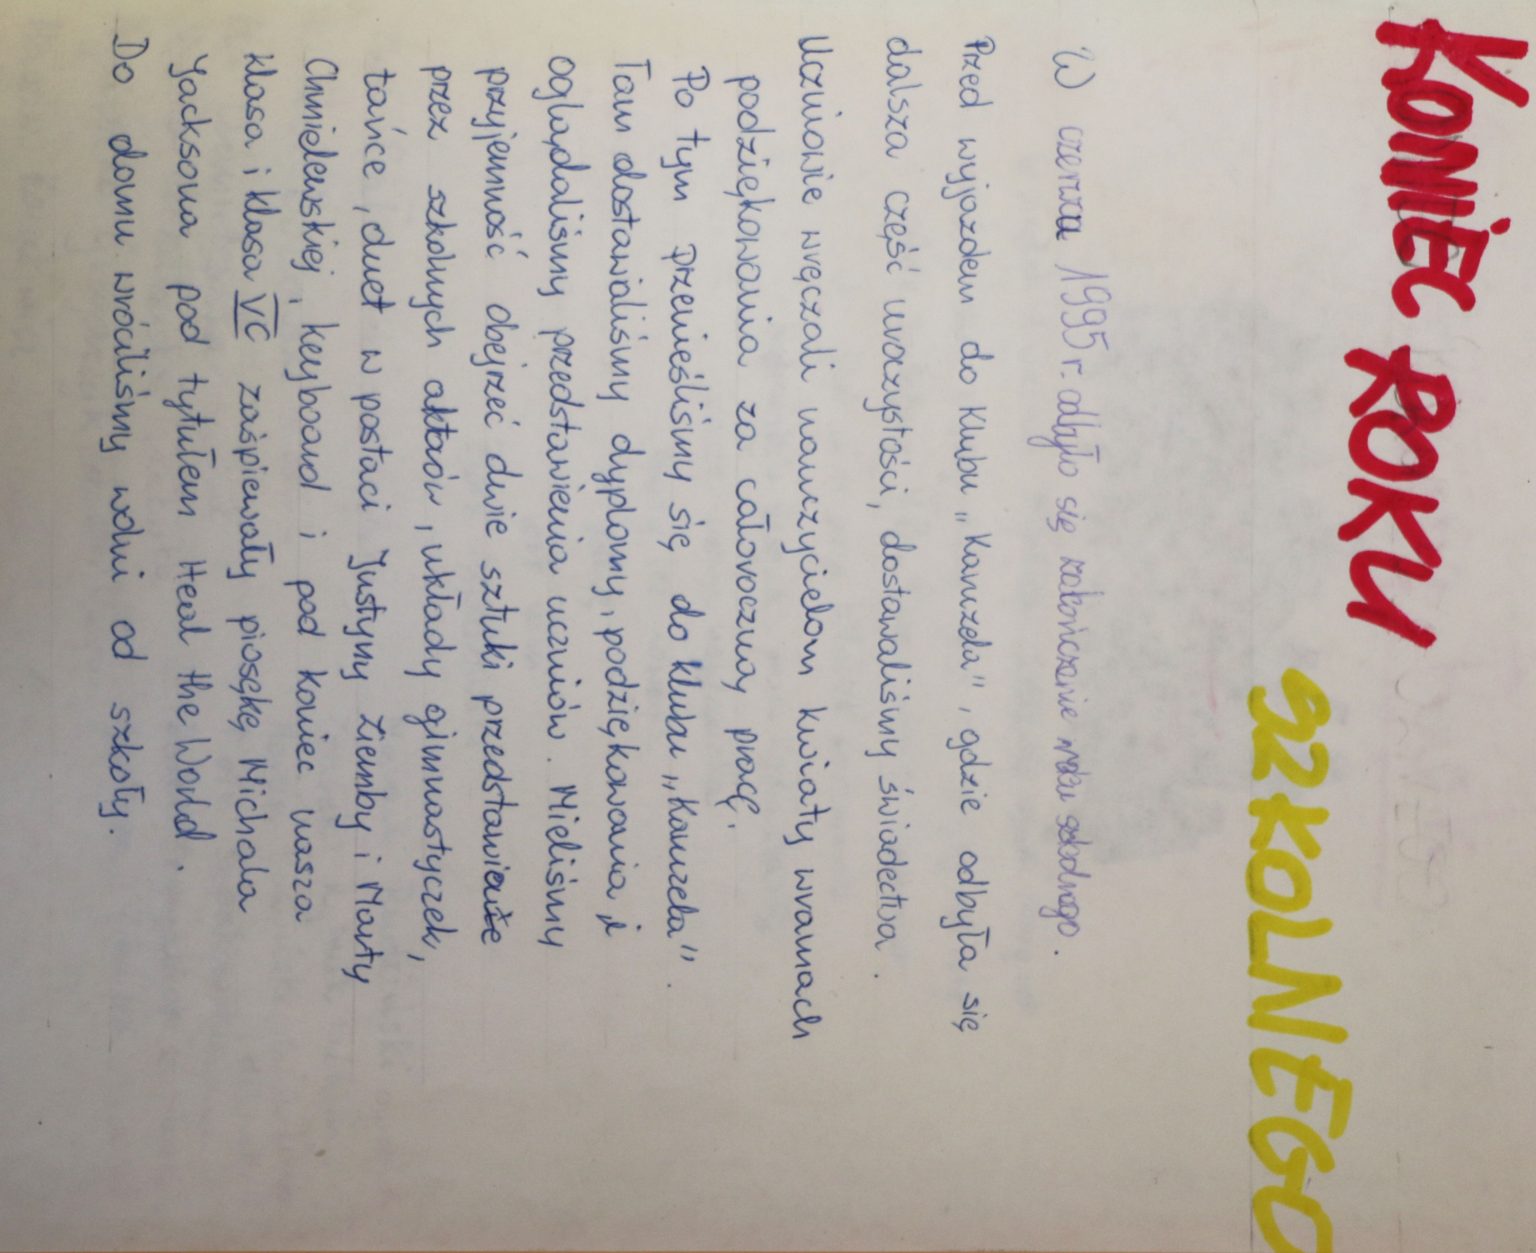 KONIEC ROKU
SZKOLNEGO
W czerwcu 1995 r. odbyło się zakończenie roku szkolnego.
Przed wyjazdem do Klubu „Kanzela", gdzie odbyła się
dalsza część uroczystości, dostawaliśmy świadectwa.
Uczniowie wręczali nauczycielom kwiaty wramach
podziękowania za całoroczną pracę.
Po tym przenieśliśmy się do klubu „Kanzela".
Tam dostawialiśmy dyplomy, podziękowania i
oglądaliśmy przedstawienia uczniów. Mieliśmy
przyjemność obejrzeć dwie sztuki przedstawione
przez szkolnych aktorów, układy gimnastyczek,
tańce, duet w postaci Justyny Ziemby i Marty
Chmielewskiej, keyboard i pod koniec nasza
klasa i klasa VC zaśpiewały piosękę Michala
Jacksona pod tytułem Heal the World.
Do domu wróciliśmy wolni od szkoły.